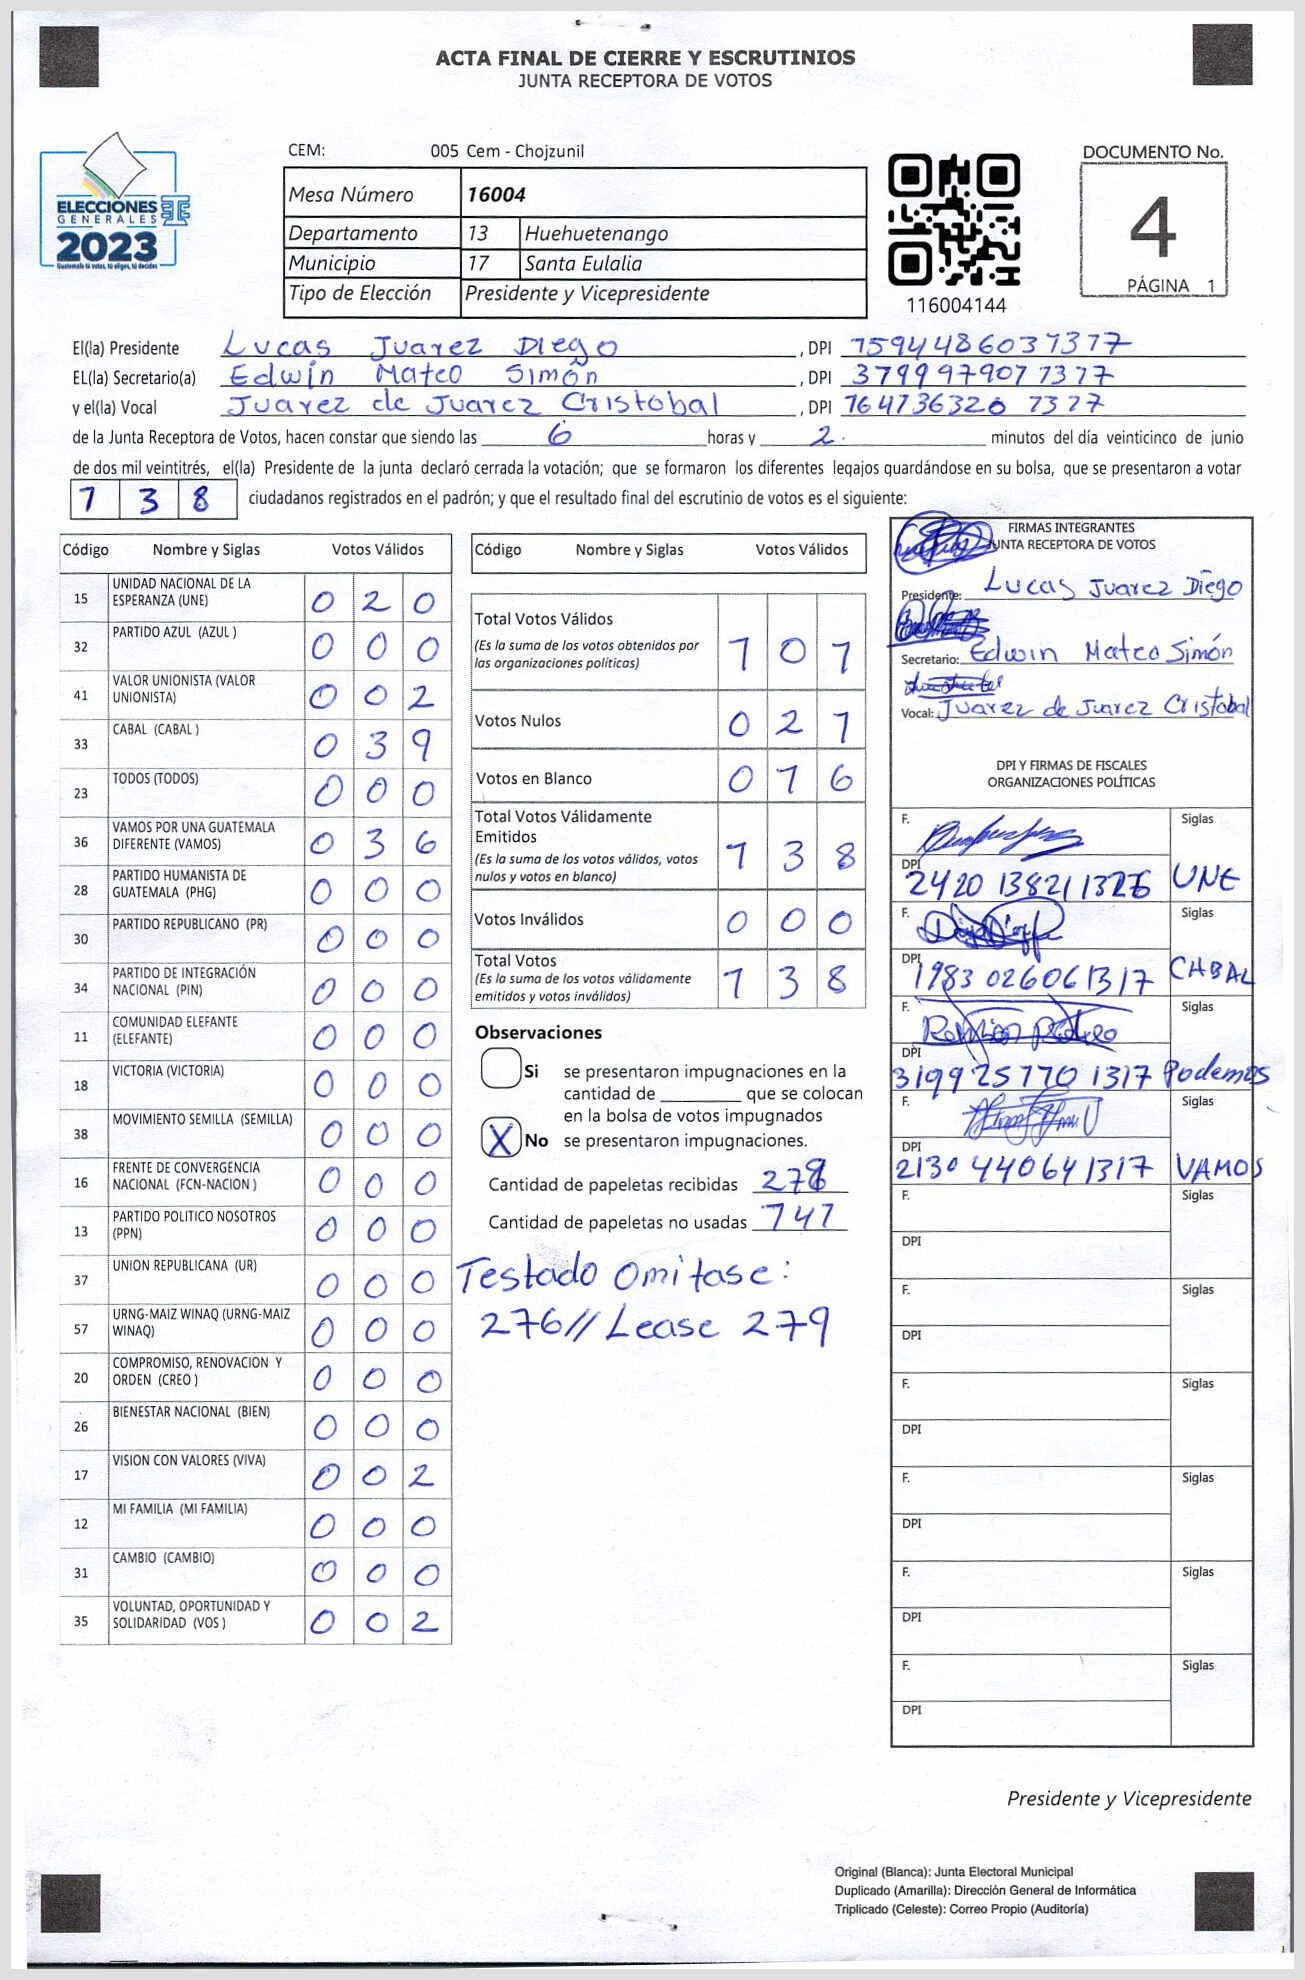 ACTA FINAL DE CIERRE Y ESCRUTINIOS
JUNTA RECEPTORA DE VOTOS
CEM: 005 Cem - Chojzunil
Mesa Número 16004
Departamento 13 Huehuetenango
Municipio 17 Santa Eulalia
Tipo de Elección Presidente y Vicepresidente
ELECCIONES
GENERALES
2023
Guatemala tú votas, tú eliges, tú decides
116004144
DOCUMENTO No.
4
PÁGINA 1
El(la) Presidente Lucas Juarez Diego , DPI 1594486031317
EL(la) Secretario(a) Edwin Mateo Simón , DPI 3799979071317
y el(la) Vocal Juarez de Juarez Cristobal , DPI 1647363201317
de la Junta Receptora de Votos, hacen constar que siendo las 6 horas y 2. minutos del día veinticinco de junio
de dos mil veintitrés, el(la) Presidente de la junta declaró cerrada la votación; que se formaron los diferentes legajos guardándose en su bolsa, que se presentaron a votar
1 3 8 ciudadanos registrados en el padrón; y que el resultado final del escrutinio de votos es el siguiente:
Código Nombre y Siglas Votos Válidos
15 UNIDAD NACIONAL DE LA ESPERANZA (UNE) 0 2 0
32 PARTIDO AZUL (AZUL ) 0 0 0
41 VALOR UNIONISTA (VALOR UNIONISTA) 0 0 2
33 CABAL (CABAL ) 0 3 9
23 TODOS (TODOS) 0 0 0
36 VAMOS POR UNA GUATEMALA DIFERENTE (VAMOS) 0 3 6
28 PARTIDO HUMANISTA DE GUATEMALA (PHG) 0 0 0
30 PARTIDO REPUBLICANO (PR) 0 0 0
34 PARTIDO DE INTEGRACIÓN NACIONAL (PIN) 0 0 0
11 COMUNIDAD ELEFANTE (ELEFANTE) 0 0 0
18 VICTORIA (VICTORIA) 0 0 0
38 MOVIMIENTO SEMILLA (SEMILLA) 0 0 0
16 FRENTE DE CONVERGENCIA NACIONAL (FCN-NACION ) 0 0 0
13 PARTIDO POLITICO NOSOTROS (PPN) 0 0 0
37 UNION REPUBLICANA (UR) 0 0 0
57 URNG-MAIZ WINAQ (URNG-MAIZ WINAQ) 0 0 0
20 COMPROMISO, RENOVACION Y ORDEN (CREO ) 0 0 0
26 BIENESTAR NACIONAL (BIEN) 0 0 0
17 VISION CON VALORES (VIVA) 0 0 2
12 MI FAMILIA (MI FAMILIA) 0 0 0
31 CAMBIO (CAMBIO) 0 0 0
35 VOLUNTAD, OPORTUNIDAD Y SOLIDARIDAD (VOS ) 0 0 2
Código Nombre y Siglas Votos Válidos
Total Votos Válidos
(Es la suma de los votos obtenidos por las organizaciones políticas) 1 0 1
Votos Nulos 0 2 1
Votos en Blanco 0 1 6
Total Votos Válidamente Emitidos
(Es la suma de los votos válidos, votos nulos y votos en blanco) 1 3 8
Votos Inválidos 0 0 0
Total Votos
(Es la suma de los votos válidamente emitidos y votos inválidos) 1 3 8
Observaciones
Si se presentaron impugnaciones en la
cantidad de ________ que se colocan
en la bolsa de votos impugnados
X No se presentaron impugnaciones.
Cantidad de papeletas recibidas
Cantidad de papeletas no usadas 141
Testado Omitase:
276// Lease 279
FIRMAS INTEGRANTES
JUNTA RECEPTORA DE VOTOS
Presidente: Lucas Juarez Diego
Secretario: Edwin Mateo Simón
Vocal: Juarez de Juarez Cristobal
DPI Y FIRMAS DE FISCALES
ORGANIZACIONES POLÍTICAS
F. Siglas
DPI 2420 138211326 UNE
F. Siglas
DPI 1983 026061317 CABAL
F. Siglas
DPI 319925770 1317 Podemos
F. Siglas
DPI 2130 440641317 VAMOS
F. Siglas
DPI
F. Siglas
DPI
F. Siglas
DPI
F. Siglas
DPI
F. Siglas
DPI
F. Siglas
DPI
Presidente y Vicepresidente
Original (Blanca): Junta Electoral Municipal
Duplicado (Amarilla): Dirección General de Informática
Triplicado (Celeste): Correo Propio (Auditoría)